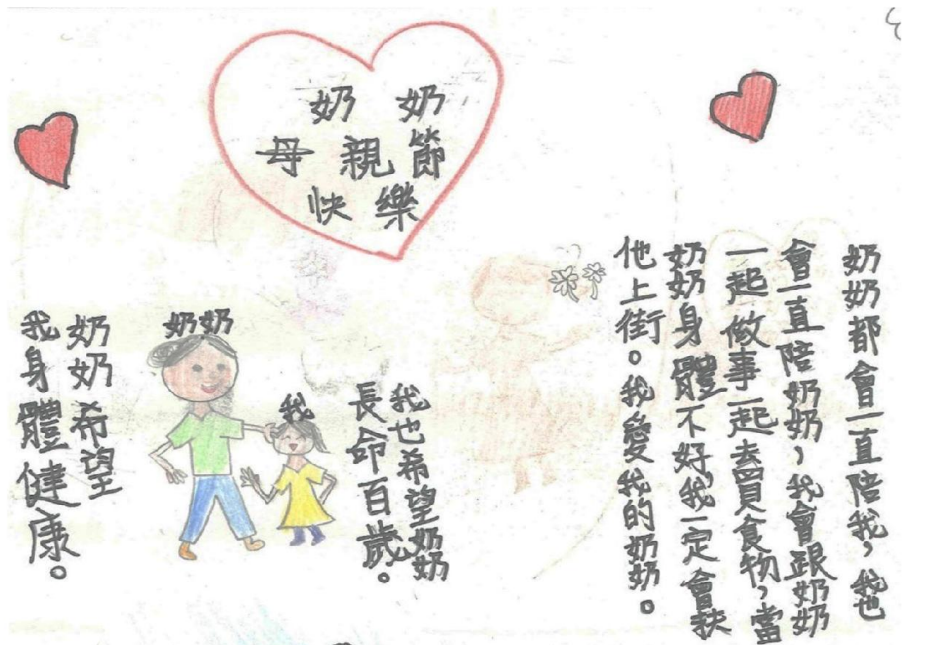 奶奶
母親節
快樂
奶奶都會一直陪我，我也
會一直陪奶奶，我會跟奶奶
一起做事一起去買食物，當
奶奶身體不好，我一定會扶
他上街。我愛我的奶奶。
我也希望奶奶
長命百歲。
我
奶奶
奶奶希望
我身體健康。